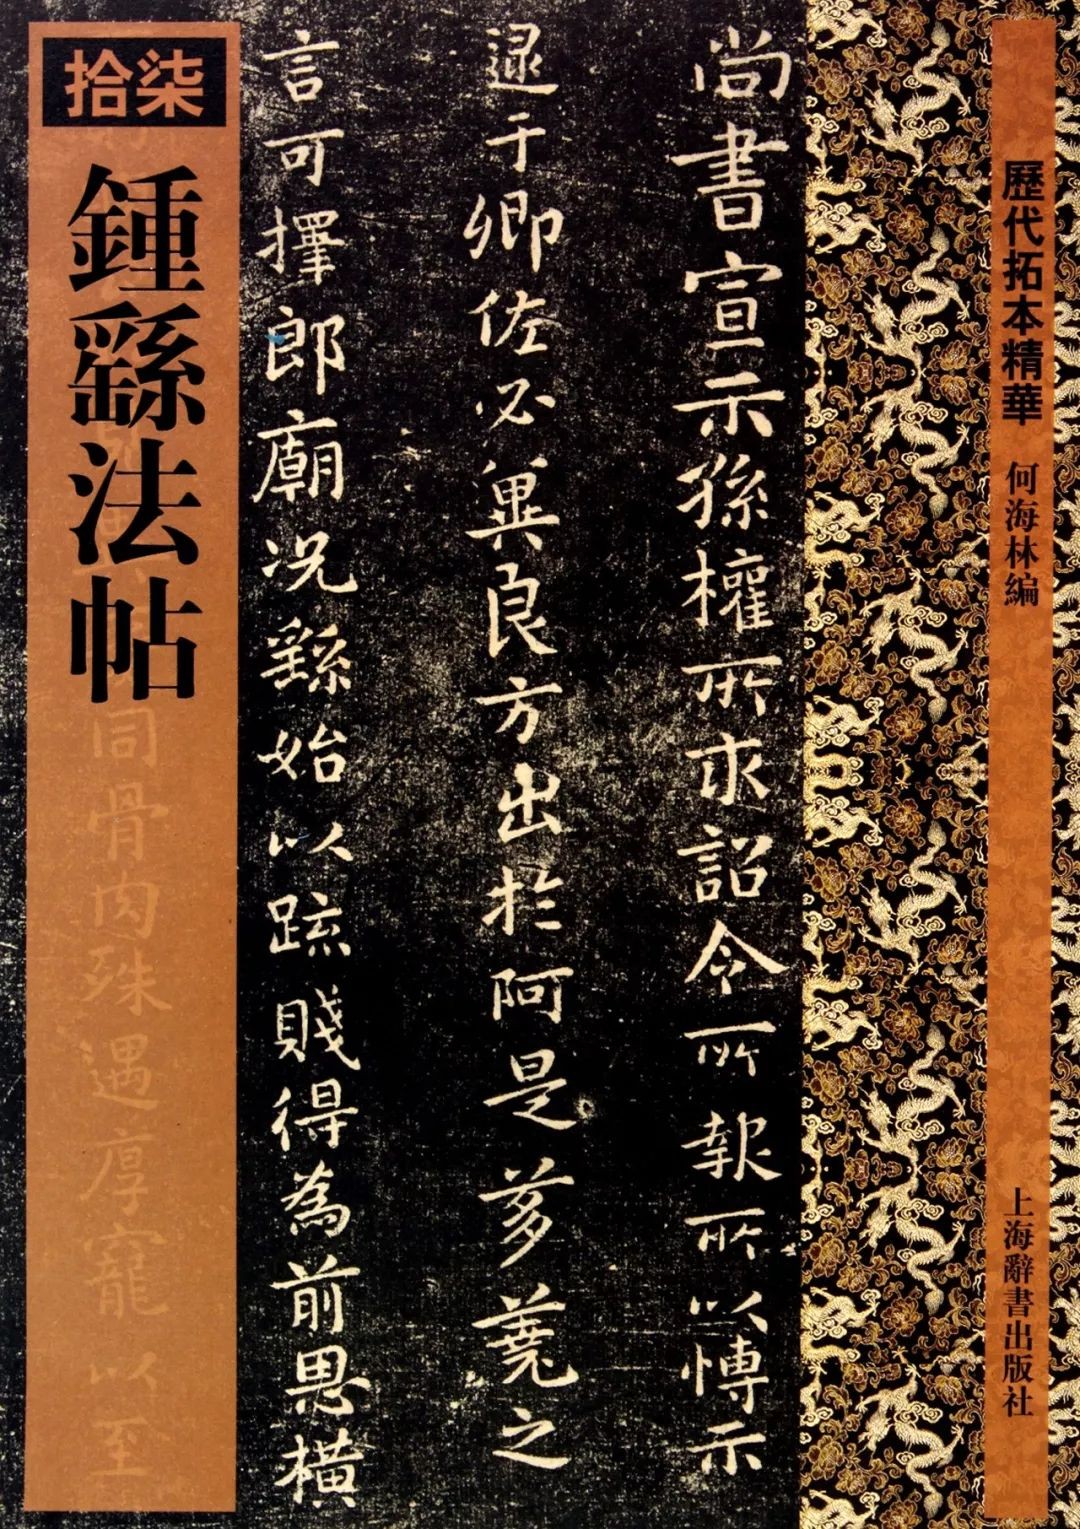 歷代拓本精華
何海林編
上海辭書出版社
尚書宣示孫權所求詔令所報所以博示
逯于卿佐必兾良方出於阿是芻蕘之
言可擇郎廟況繇始以疏賤得為前恩橫
拾柒
鍾繇法帖
同骨肉殊遇厚寵以至